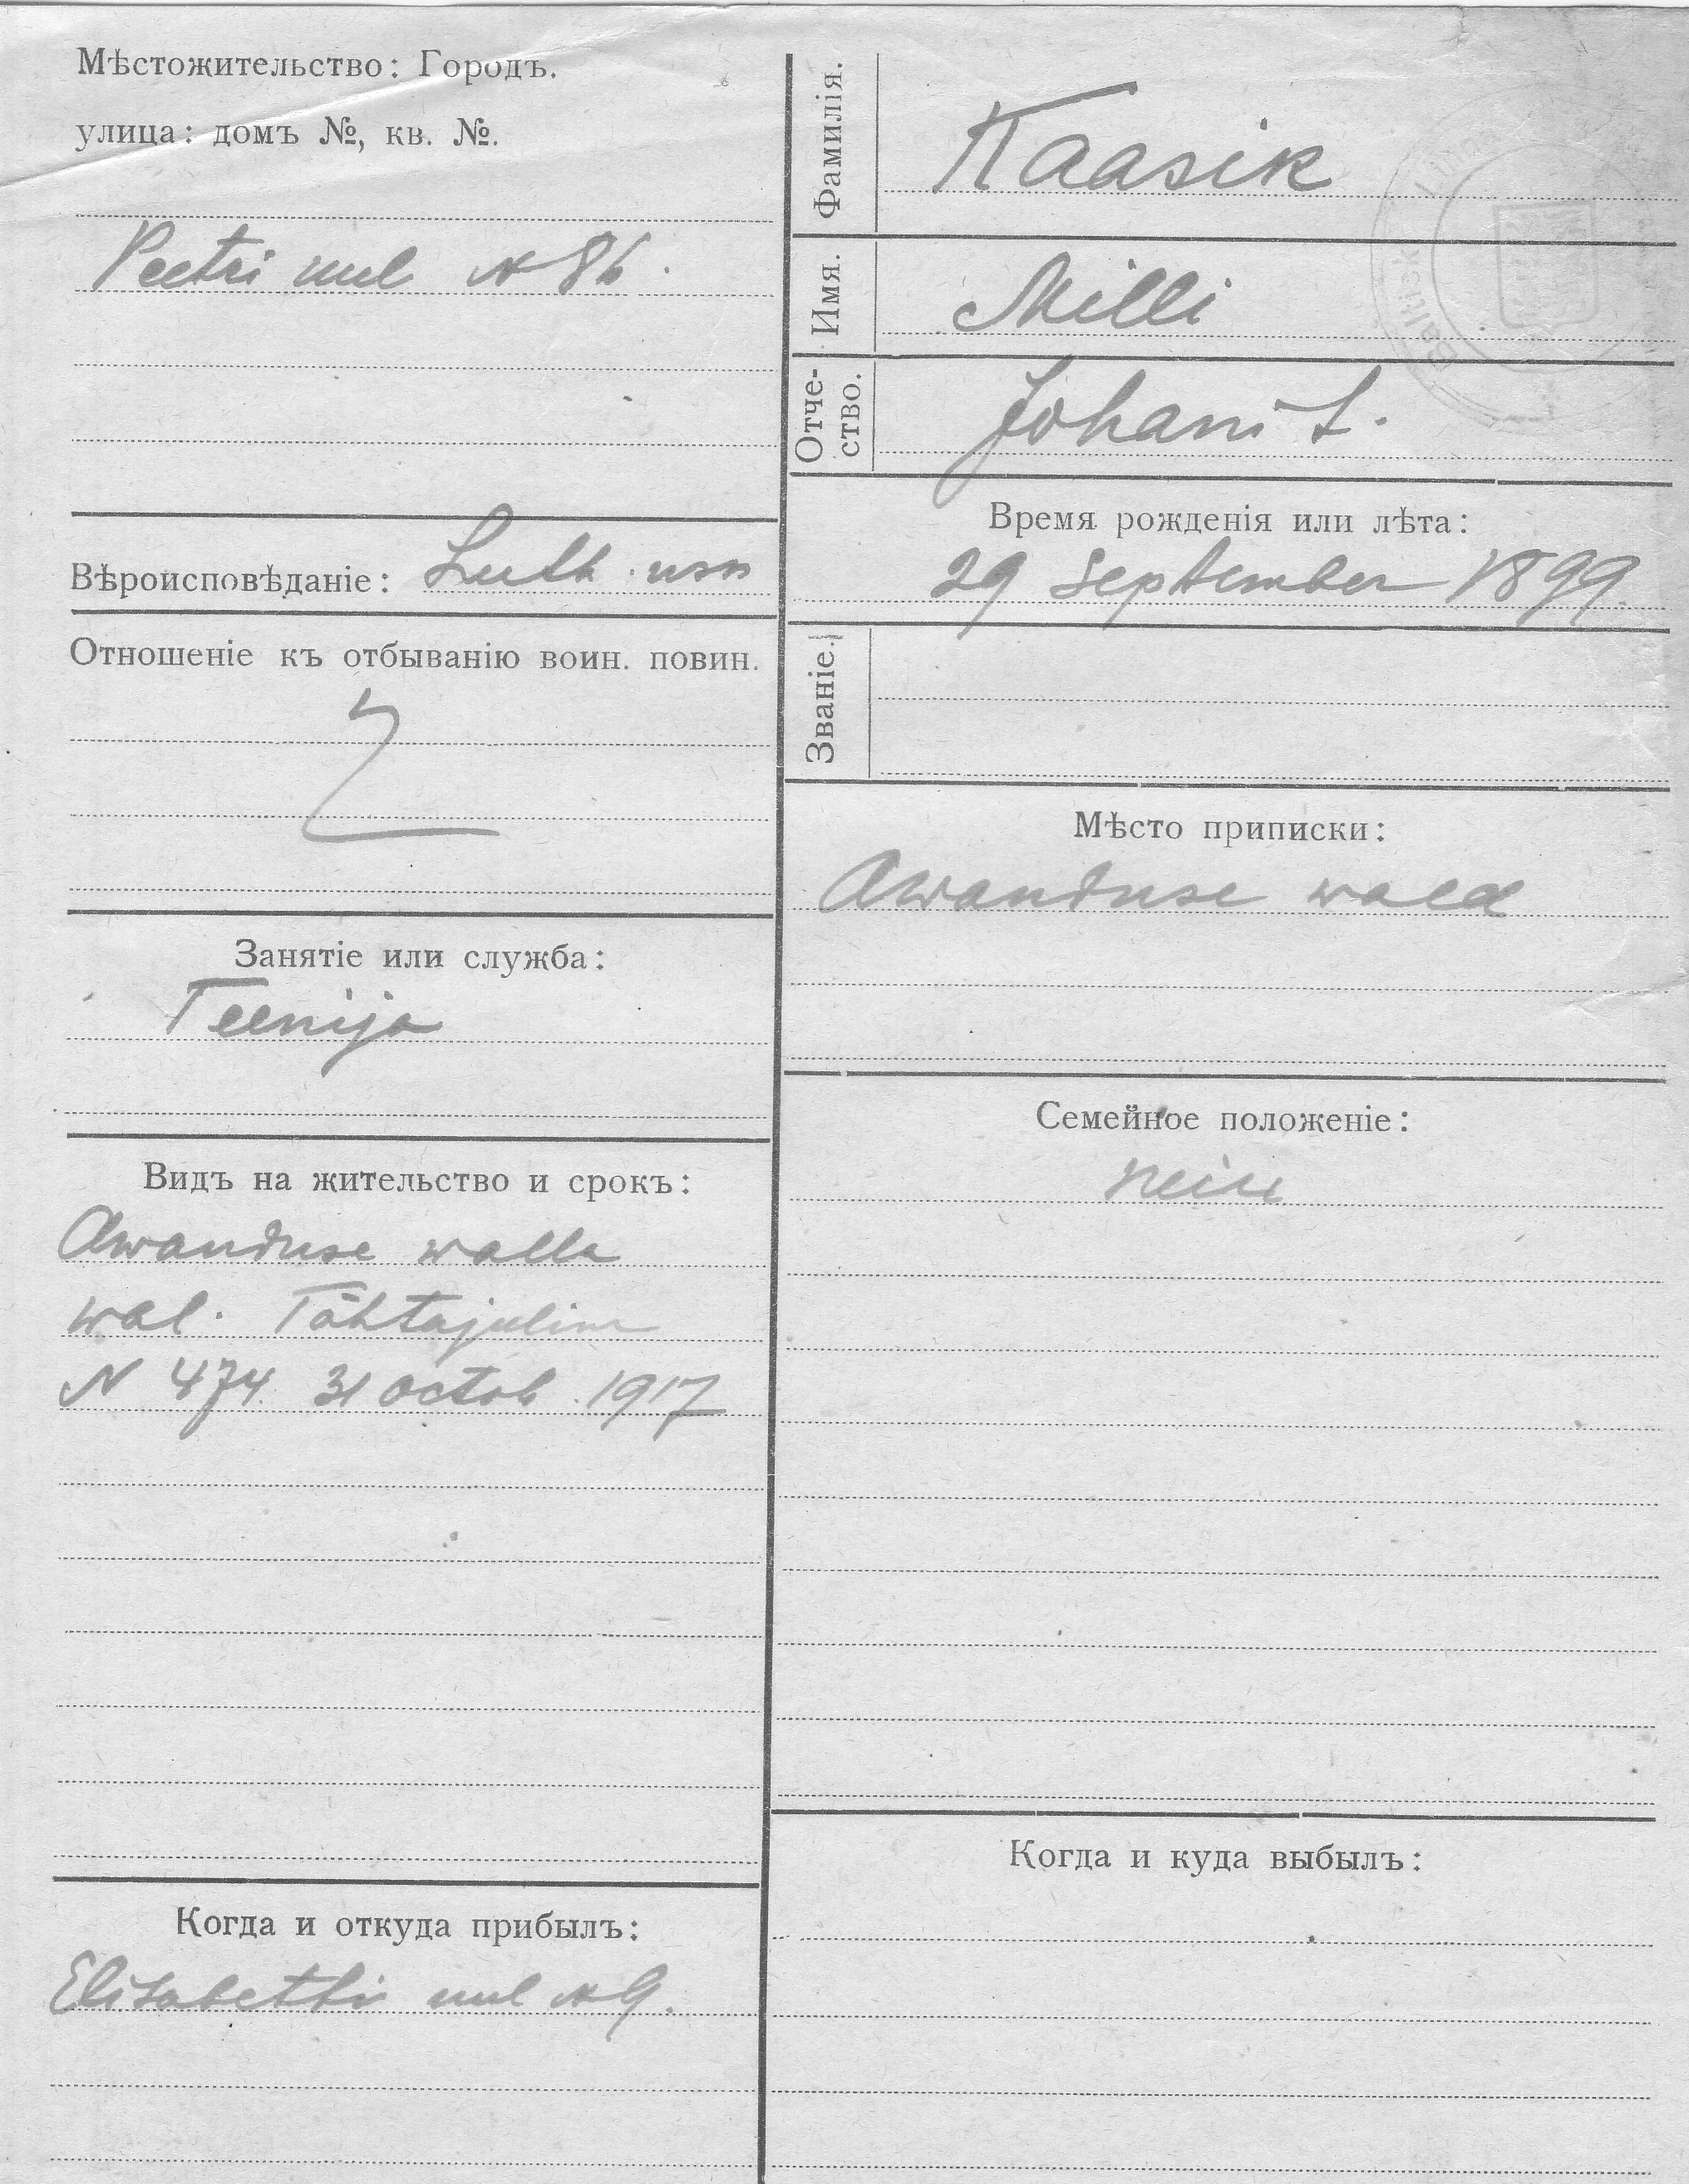 Мѣстожительство: Городъ.
улица: домъ №, кв. №.
Peetri uul N 86.
Вѣроисповѣданіе: Luth. usu
Отношеніе къ отбыванію воин. повин.
Занятіе или служба:
Teenija
Видъ на жительство и срокъ:
Awanduse walla
wal. Tähtajuline
N 474. 31 octob. 1917
Когда и откуда прибылъ:
Elisabethi uul N 9.
Фамилія.
Kaasik
Имя.
Milli
Отче-
ство.
Johani t.
Время рожденія или лѣта:
29 September 1899
Званіе.
Мѣсто приписки:
Awanduse wald
Семейное положеніе:
neiu
Когда и куда выбылъ: